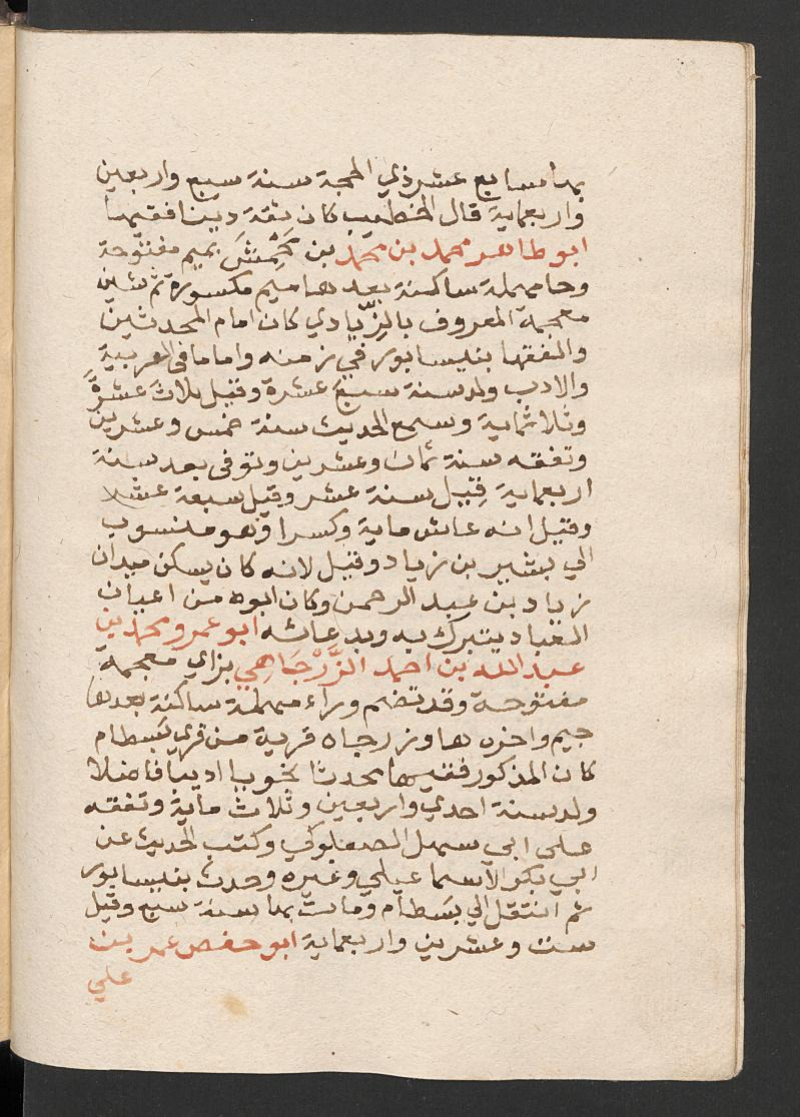 بها سابع عشر ذي الحجة سنة سبع واربعين
واربعماية قال الخطيب كان ثقة دينا فقيها
ابو طاهر محمد بن محمد بن مَحْمِشَ بميم مفتوحة
وحا مهملة ساكنة بعدها ميم مكسورة ثم شين
معجمة المعروف بالزِّيادي كان امام المحدثين
والفقها بنيسابور في زمنه واماما في العربية
والادب ولد سنة سبعَ عشرة وقيل ثلاثَ عشرةَ
وثلاثماية وسمع الحديث سنة خمس وعشرين
وتفقه سنة ثمان وعشرين وتوفى بعد سنة
اربعماية قِيل سنة عشر وقيل سبعة عشر
وقيل انه عاش ماية وكسرا وهو منسوب
الي بشير بن زياد وقيل لانه كان يسكن ميدان
زياد بن عبد الرحمن وكان ابوه من اعيان
العباد يتبرك به وبدعائه ابو عمرو محمد بن
عبد الله بن احمد الزَّرْجَاهِي بزاي معجمة
مفتوحة وقد تضم وراء مهملة ساكنة بعدها
جيم واخره ها وزرجاه قرية من قري بَسطام
كان المذكور فقيها محدثا نحويا اديبا فاضلا
ولد سنة احدي واربعين وثلاث ماية وتفقه
على ابي سهل الصعلوكي وكتب الحديث عن
ابي بكر الاسماعيلي وغيره وحدث بنيسابور
ثم انتقل الي بسَطام ومات بها سنة سبع وقيل
ست وعشرين واربعماية ابو حفص عمر بن
علي